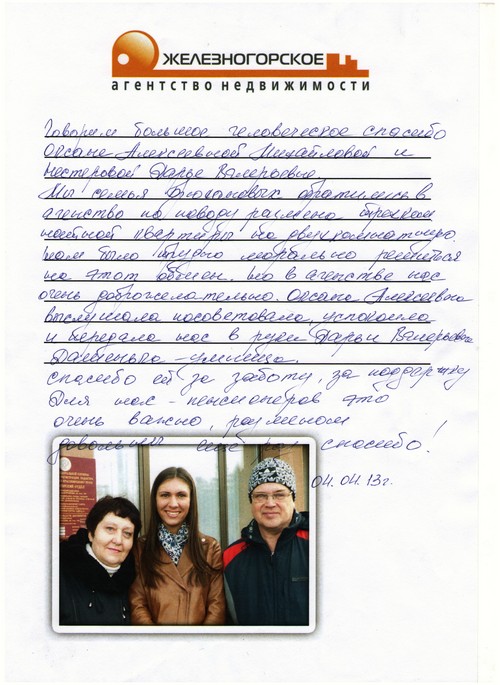 ЖЕЛЕЗНОГОРСКОЕ
агентство недвижимости
Говорим большое человеческое спасибо
Оксане Алексеевной Михайловой и
Нестеровой Дарье Валерьевне.
Мы семья обратились в
агенство по поводу размена трехком
натной квартиры на двухкомнатную.
Нам было трудно морально решиться
на этот обмен. Но в агенстве нас
очень доброжелательно. Оксана Алексеевна
выслушала посоветовала, успокоила
и передала нас в руки Дарьи Валерьевне
Дашенька - умница.
Спасибо ей за заботу, за поддержку
Для нас - пенсионеров это
очень важно, разменом
довольны еще раз спасибо!
04.04.13г.